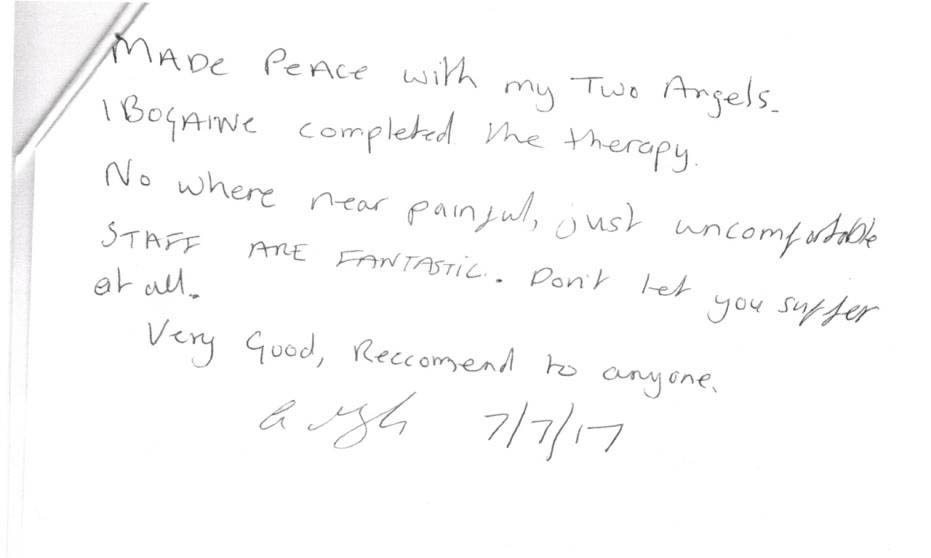 MADE PEACE with my Two Angels.
IBOGAINE completed the therapy.
No where near painful, just uncomfortable
STAFF ARE FANTASTIC. Don't let you suffer
at all.
Very Good, Reccomend to anyone.
7/7/17